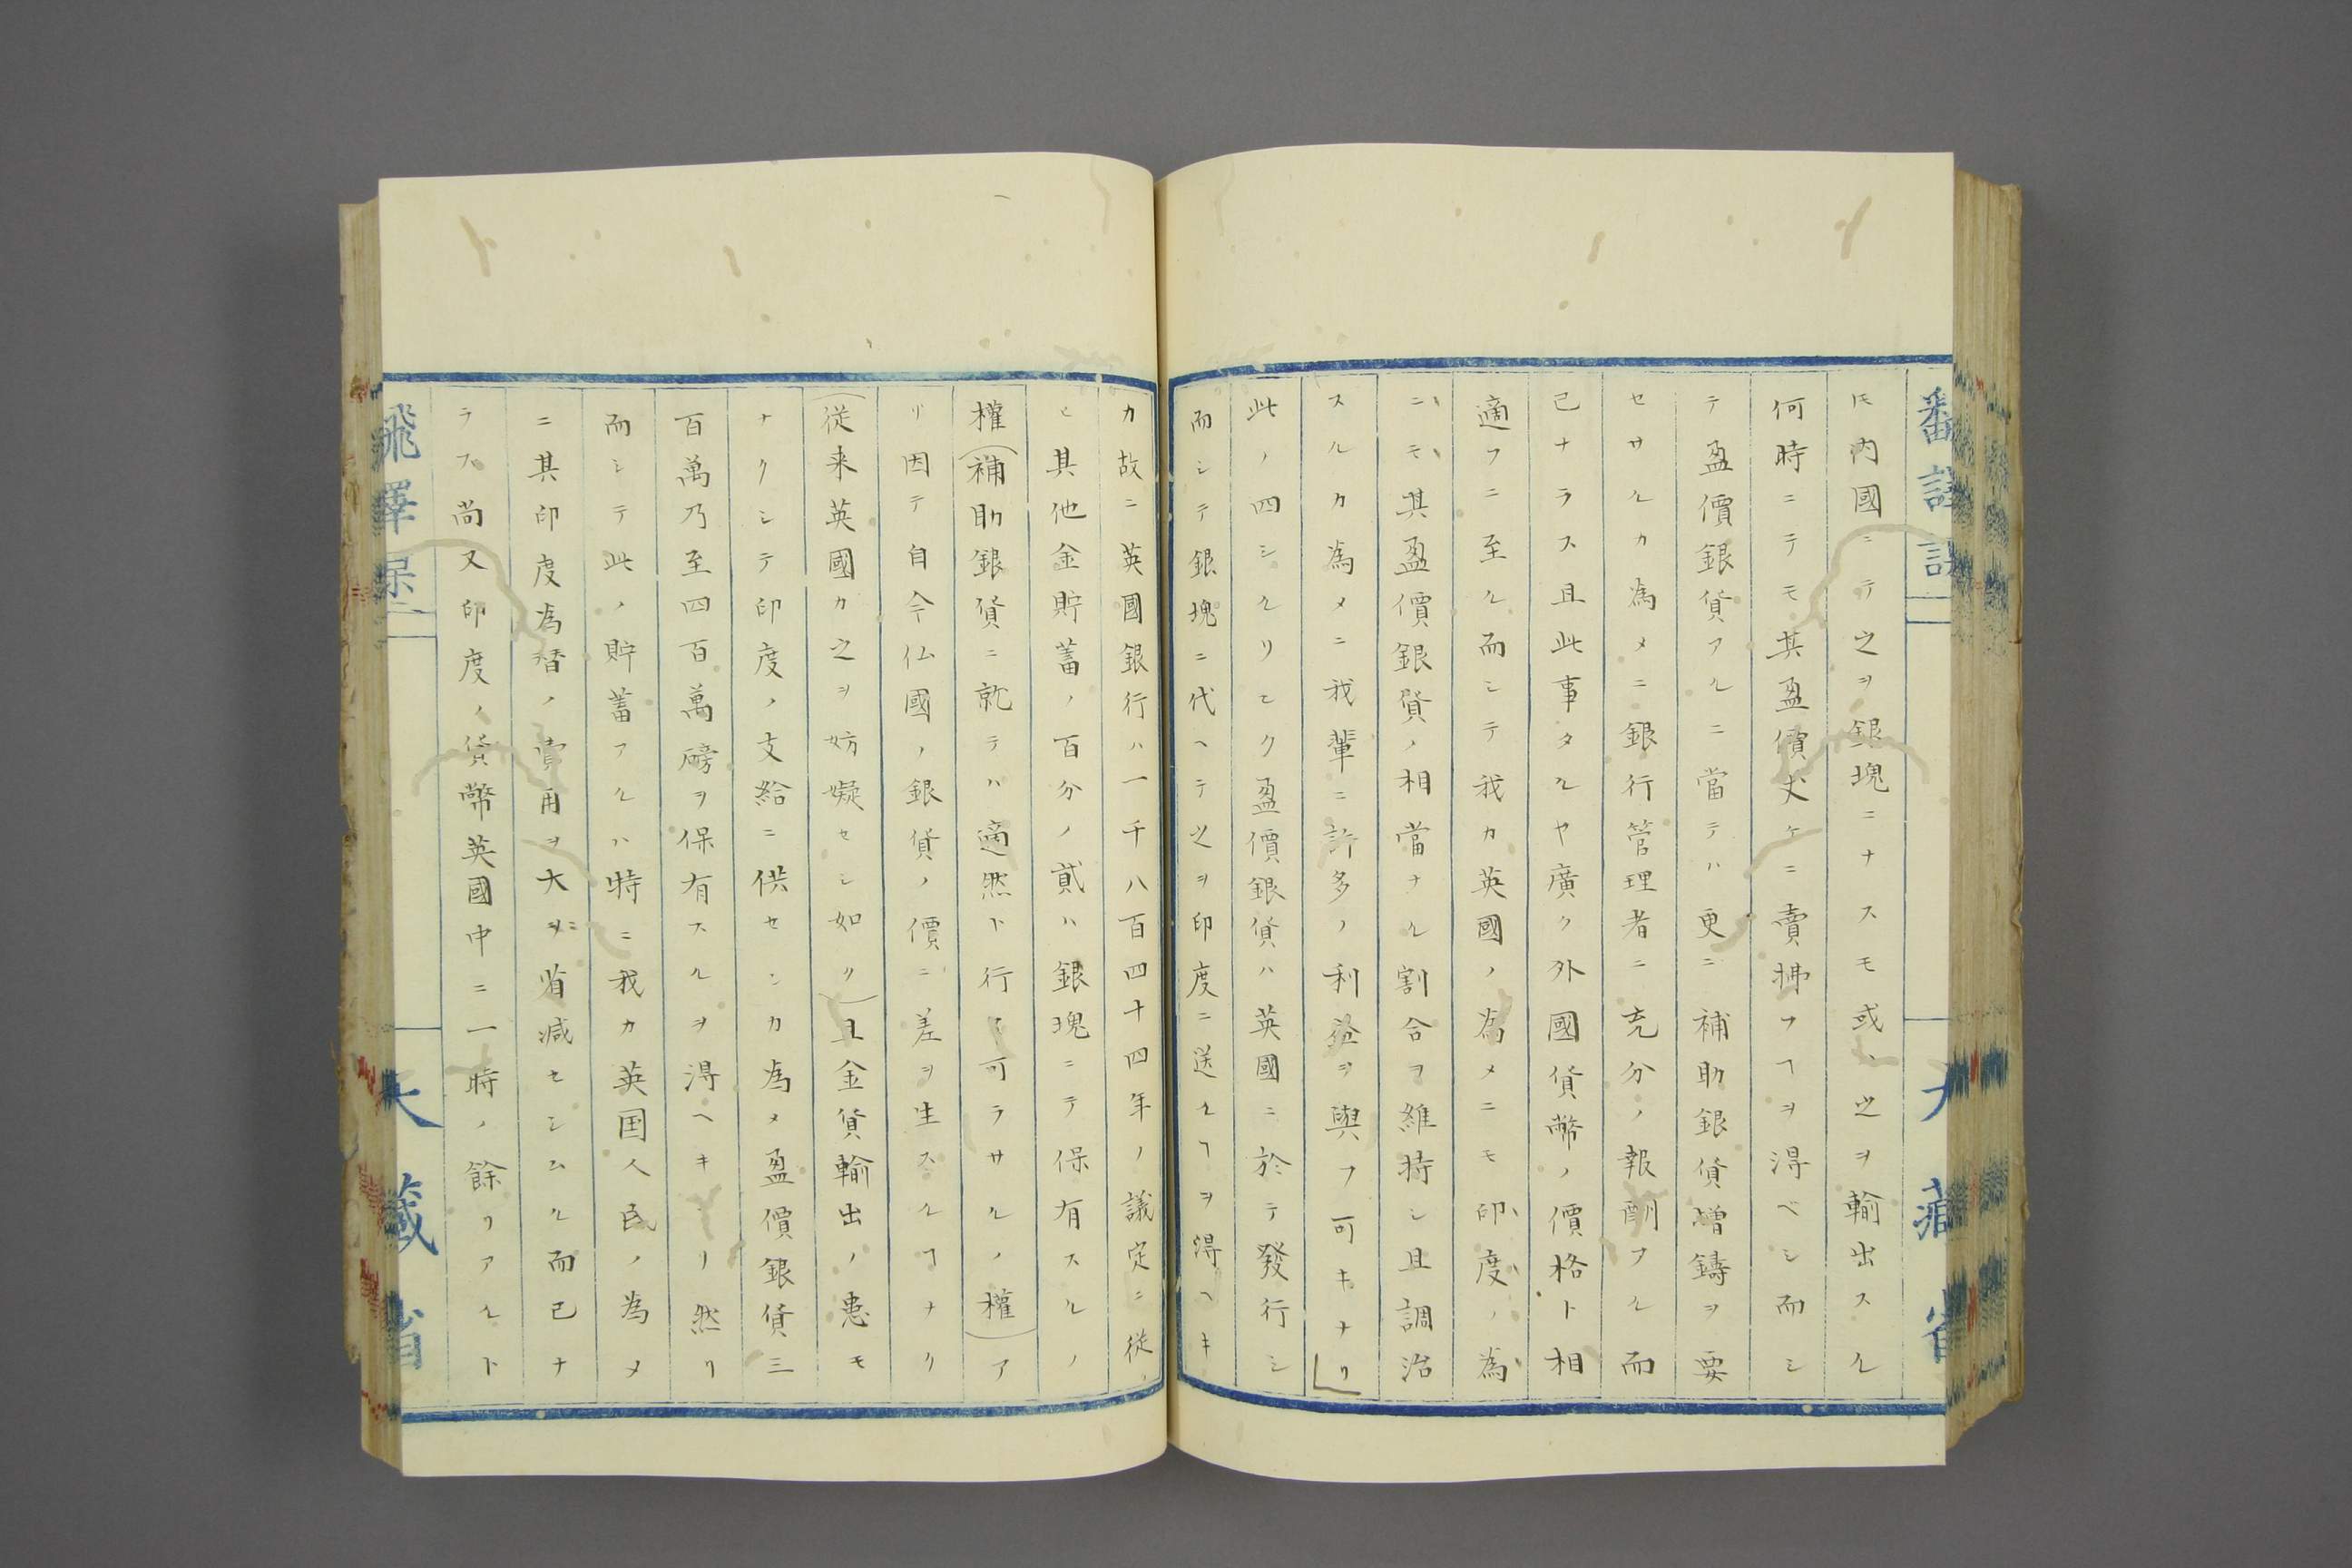 飜譯課
大藏省
圧内國ニテ之ヲ銀塊ニナスモ或ハ之ヲ輸出スル
何時ニテモ其盈價丈ケニ賣拂フヿヲ得ベシ而シ
テ盈價銀貨アルニ當テハ更ニ補助銀貨增鑄ヲ要
セサルカ為メニ銀行管理者ニ充分ノ報酬アル而
已ナラス且此事タルヤ廣ク外國貨幣ノ價格ト相
適フニ至ル而シテ我カ英國ノ為メニモ印度ノ為
ニモ其盈價銀貨ノ相當ナル割合ヲ維持シ且調治
スルカ為メニ我輩ニ許多ノ利益ヲ與フ可キナリ
此ノ四シルリヒク盈價銀貨ハ英國ニ於テ發行シ
而シテ銀塊ニ代ヘテ之ヲ印度ニ送ルヿヲ得ヘキ
カ故ニ英國銀行ハ一千八百四十四年ノ議定ニ従
ヒ其他金貯蓄ノ百分ノ貳ハ銀塊ニテ保有スルノ
權(補助銀貨ニ就テハ適然ト行フ可ラサルノ權)ア
リ因テ自今仏國ノ銀貨ノ價ニ差ヲ生スルヿナク
(従来英國カ之ヲ妨礙セシ如ク)且金貨輸出ノ患モ
ナクシテ印度ノ支給ニ供センカ為メ盈價銀貨三
百萬乃至四百萬磅ヲ保有スルヲ得ヘキナリ然リ
而シテ此ノ貯蓄アルハ特ニ我カ英国人民ノ為メ
ニ其印度為替ノ費用ヲ大ニ省減セシムル而已ナ
ラス尚又印度ノ貨幣英國中ニ一時ノ餘リアルト
飜譯課
大藏省